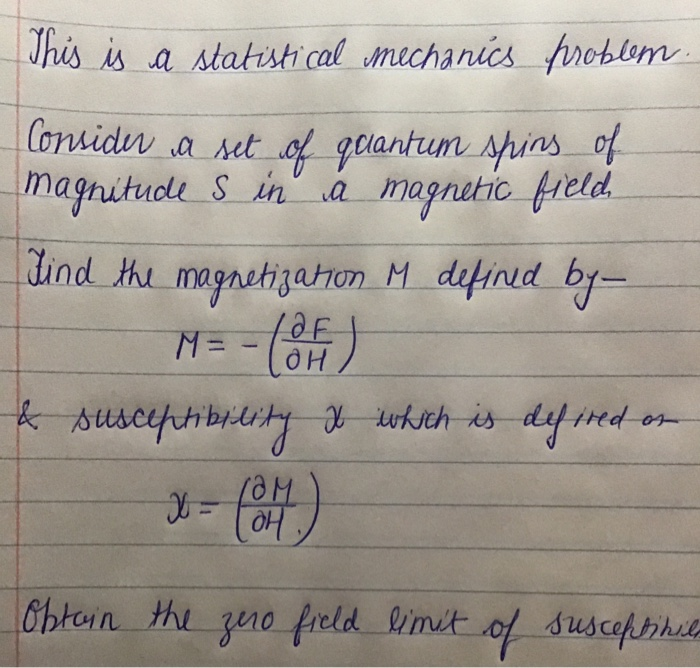 This is a statistical mechanics problem.
Consider a set of quantum spins of
magnitude S in a magnetic field.
Find the magnetization M defined by-
M = - (∂F/∂H)
& susceptibility χ which is defined as
χ = (∂M/∂H.)
Obtain the zero field limit of